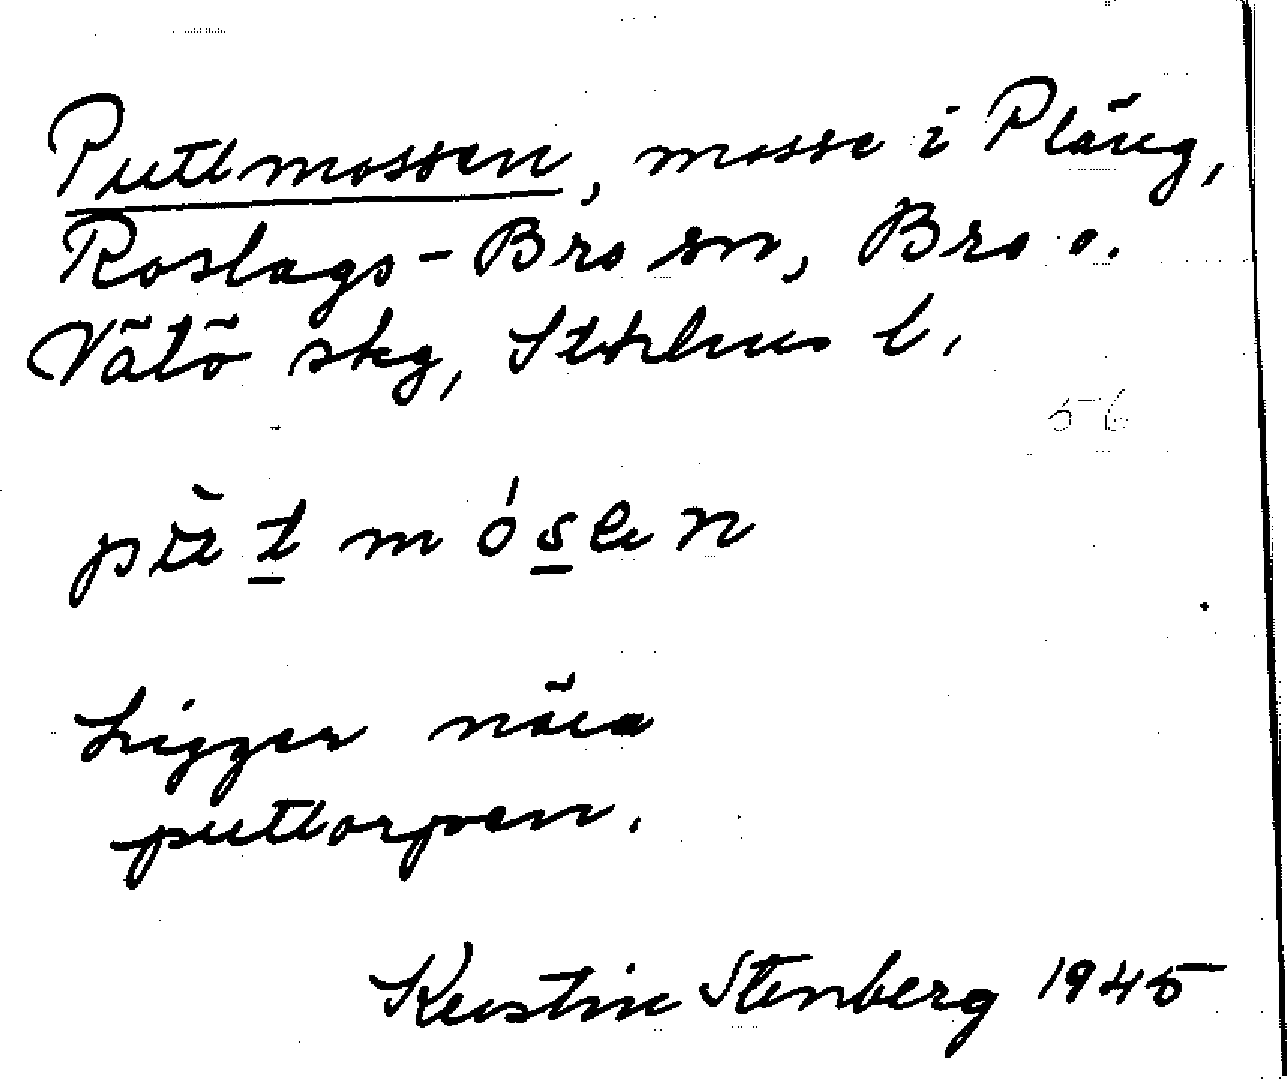 Puttmossen, mosse i Pläng,
Roslags-Bro sn, Bro o.
Vätö skg, Sthlms l.
56
pùt mósen
Ligger nära
puttorpen.
Kerstin Stenberg 1945